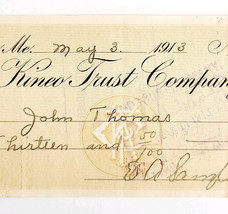 Me. May 3. 1913
Kineo Trust Company
John Thomas
Thirteen and 00/100